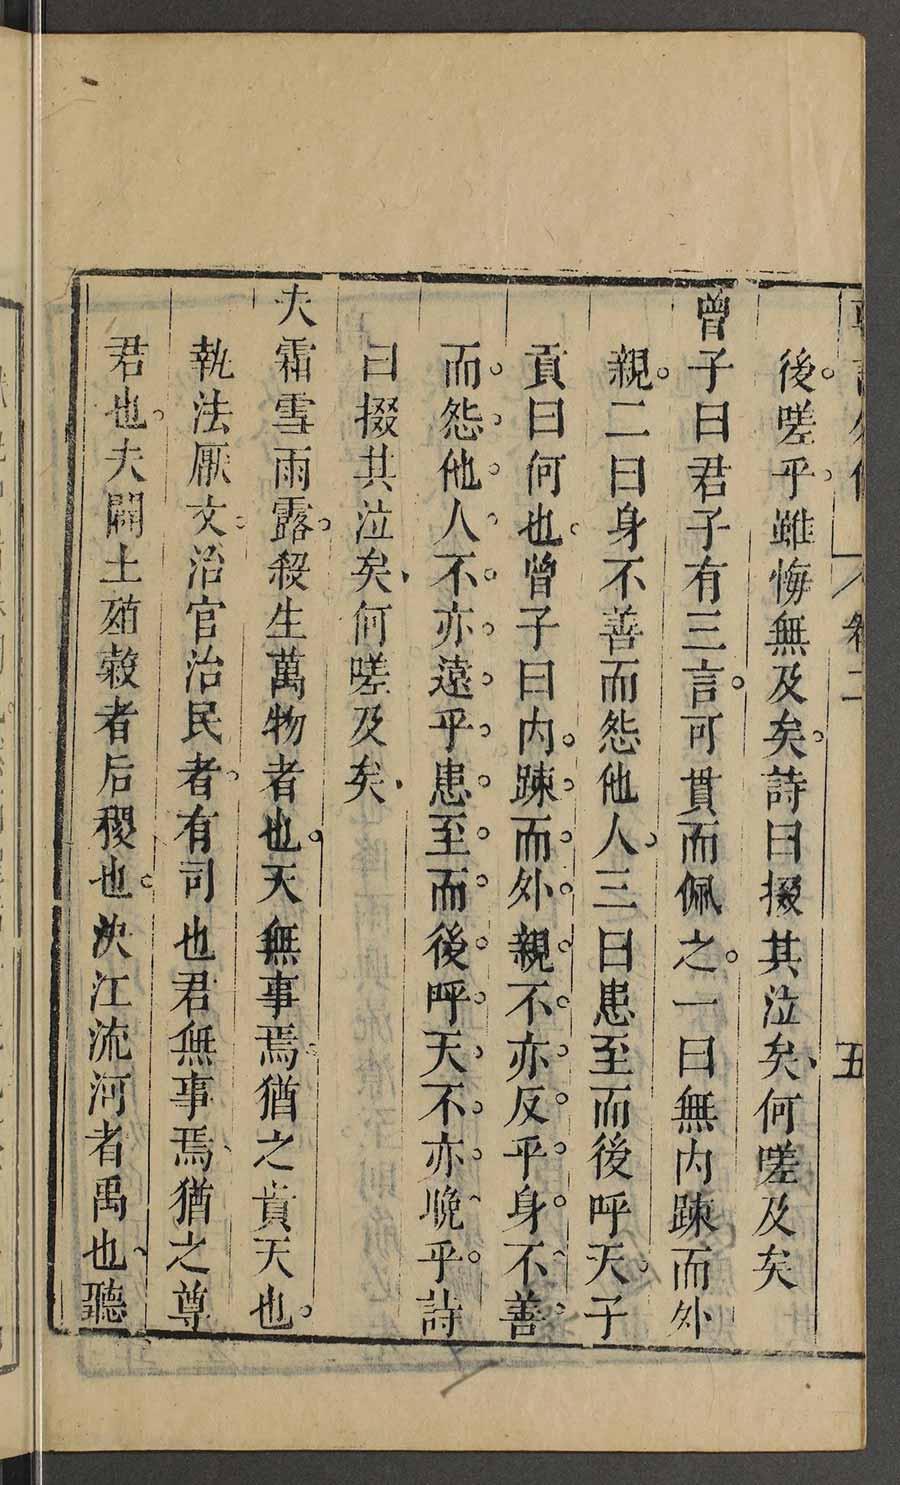 卷二 五
後嗟乎雖悔無及矣詩曰掇其泣矣何嗟及矣
曾子曰君子有三言可貫而佩之一曰無内踈而外
親二曰身不善而怨他人三曰患至而後呼天子
貢曰何也曾子曰内踈而外親不亦反乎身不善
而怨他人不亦遠乎患至而後呼天不亦晚乎詩
曰掇其泣矣何嗟及矣
夫霜雪雨露殺生萬物者也天無事焉猶之貴天也
執法厭文治官治民者有司也君無事焉猶之尊
君也夫闢土殖穀者后稷也决江流河者禹也聽